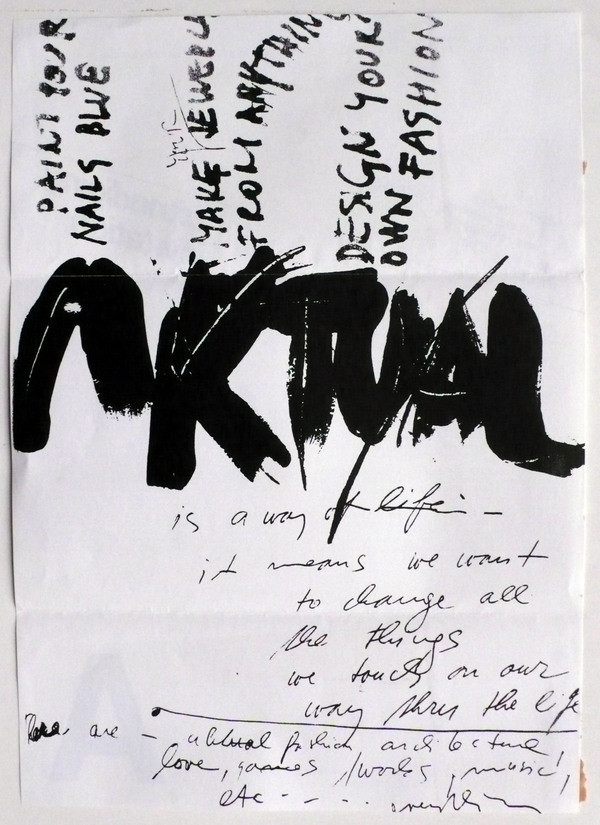 PAINT YOUR
NAILS BLUE
MAKE YOUR JEWELRY
FROM ANYTHING
DESIGN YOUR
OWN FASHION
AKTUAL
is a way of life —
it means we want
to change all
the things
we touch on our
way thru the life
are — aktual fashion, architecture,
love, games / works, music,
etc - - -